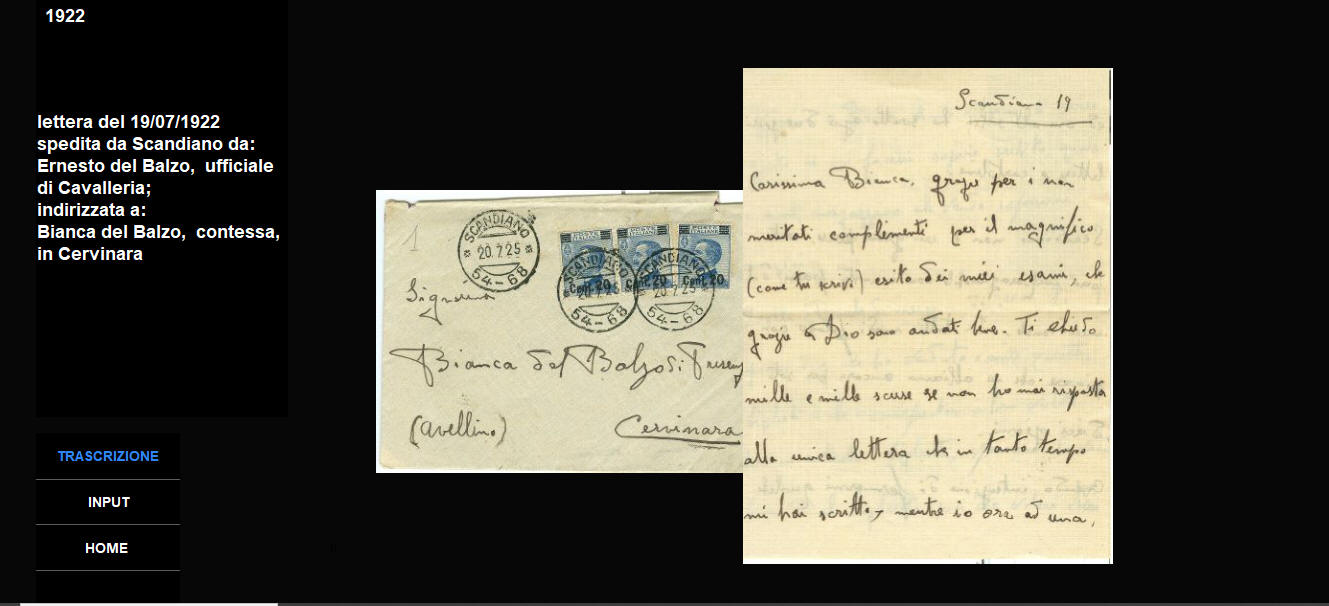 1922
lettera del 19/07/1922
spedita da Scandiano da:
Ernesto del Balzo, ufficiale
di Cavalleria;
indirizzata a:
Bianca del Balzo, contessa,
in Cervinara
TRASCRIZIONE
INPUT
HOME
1
SCANDIANO
20.7.25
54-68
SCANDIANO
20.7.25
54-68
SCANDIANO
20.7.25
54-68
Cent. 20
Cent. 20
Cent. 20
Signorina
Bianca del Balzo di
(Avellino) Cervinara
Scandiano 19
Carissima Bianca, grazie per i non
meritati complimenti per il magnifico
(come tu scrivi) esito dei miei esami, che
grazie a Dio sono andati bene. Ti chiedo
mille e mille scuse se non ho mai risposto
alla unica lettera che in tanto tempo
mi hai scritto, mentre io ora ad una,